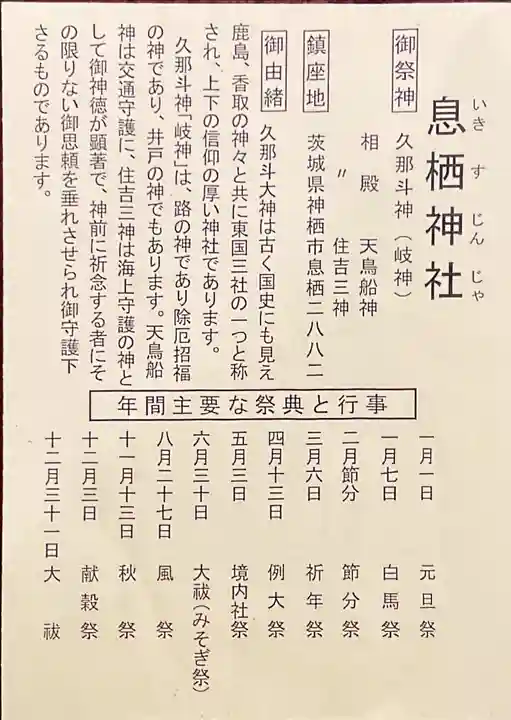 息栖神社
いきすじんじゃ
御祭神　久那斗神（岐神）
相殿　天鳥船神
〃　住吉三神
鎮座地　茨城県神栖市息栖二八八二
御由緒　久那斗大神は古く国史にも見え
鹿島、香取の神々と共に東国三社の一つと称
され、上下の信仰の厚い神社であります。
久那斗神「岐神」は、路の神であり除厄招福
の神であり、井戸の神でもあります。天鳥船
神は交通守護に、住吉三神は海上守護の神と
して御神徳が顕著で、神前に祈念する者にそ
の限りない御思頼を垂れさせられ御守護下
さるものであります。
年間主要な祭典と行事
一月一日　元旦祭
一月七日　白馬祭
二月節分　節分祭
三月六日　祈年祭
四月十三日　例大祭
五月三日　境内社祭
六月三十日　大祓（みそぎ祭）
八月二十七日　風祭
十一月十三日　秋祭
十二月三日　献穀祭
十二月三十一日　大祓